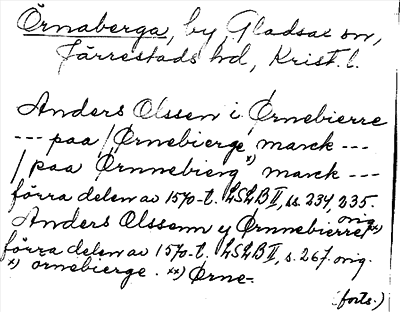 Örnaberga, by Gladsax sn,
Järrestads hd, Krist. l.
Anders Olssen i Ørnebierre
--- paa / Ørnebierge marck ---
/ paa Ørnnebierg x) marck ---
förra delen av 1570-t. LSLB II, ss. 234, 235.
orig.
Anders Olssenn y Ørnnebierre xx)
förra delen av 1570-t. LSLB II, s. 267. orig.
x) ornebierge. xx) Ørne-
(forts.)